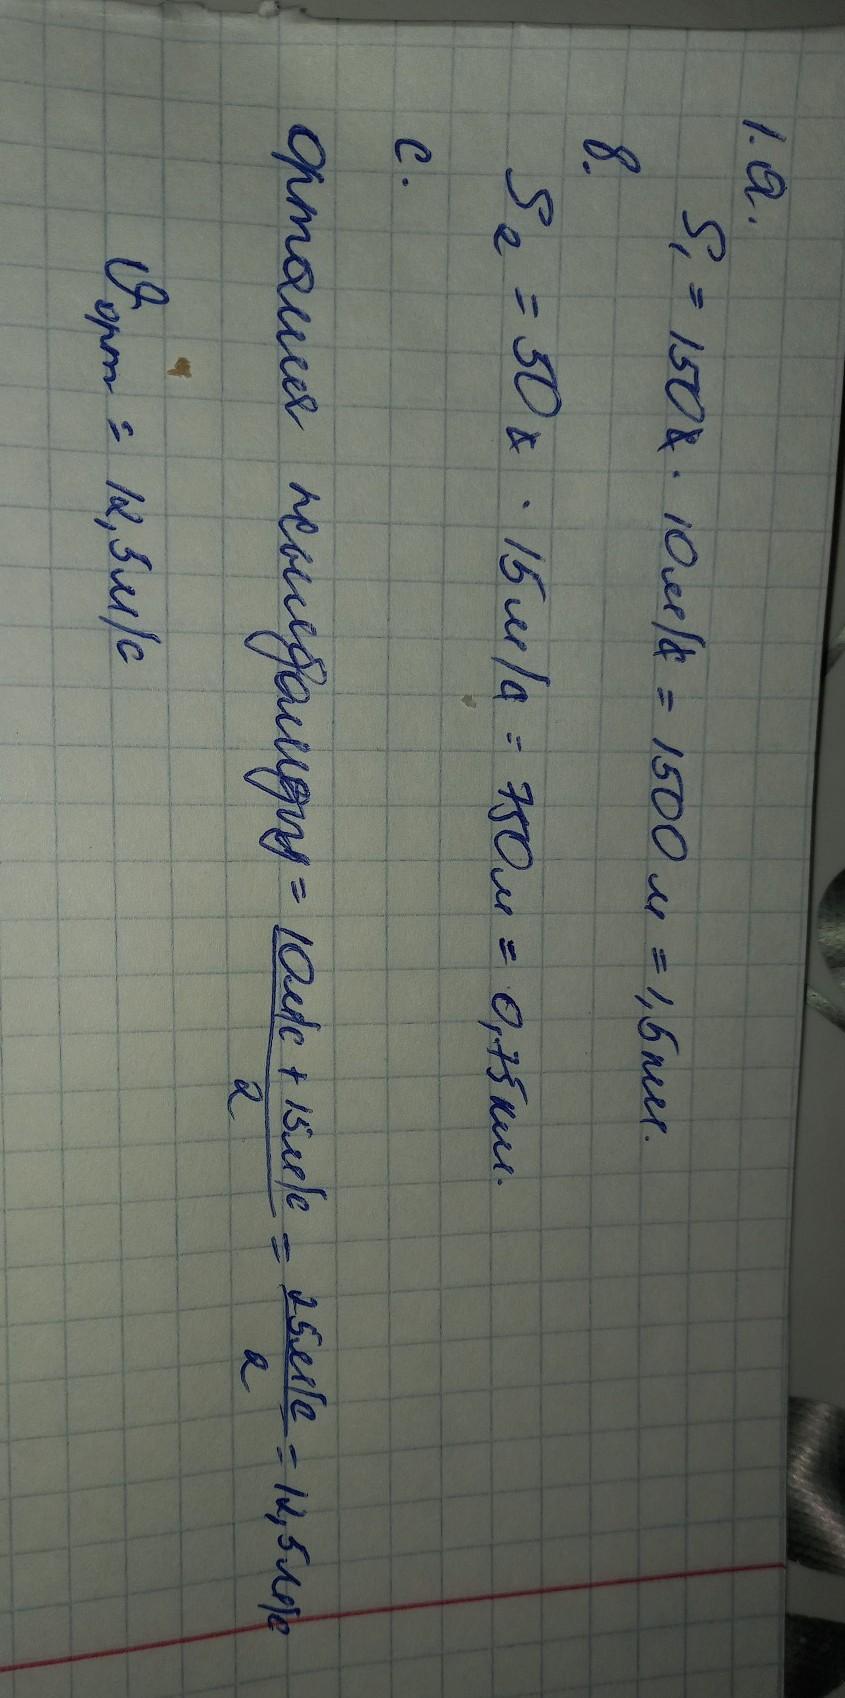 1. a.
S₁ = 150 с · 10 м/с = 1500 м = 1,5 км.
в.
S₂ = 50 с · 15 м/с = 750 м = 0,75 км.
с.
орташа жылдамдық = (10 м/с + 15 м/с)/2 = 25 м/с/2 = 12,5 м/с
υорт = 12,5 м/с